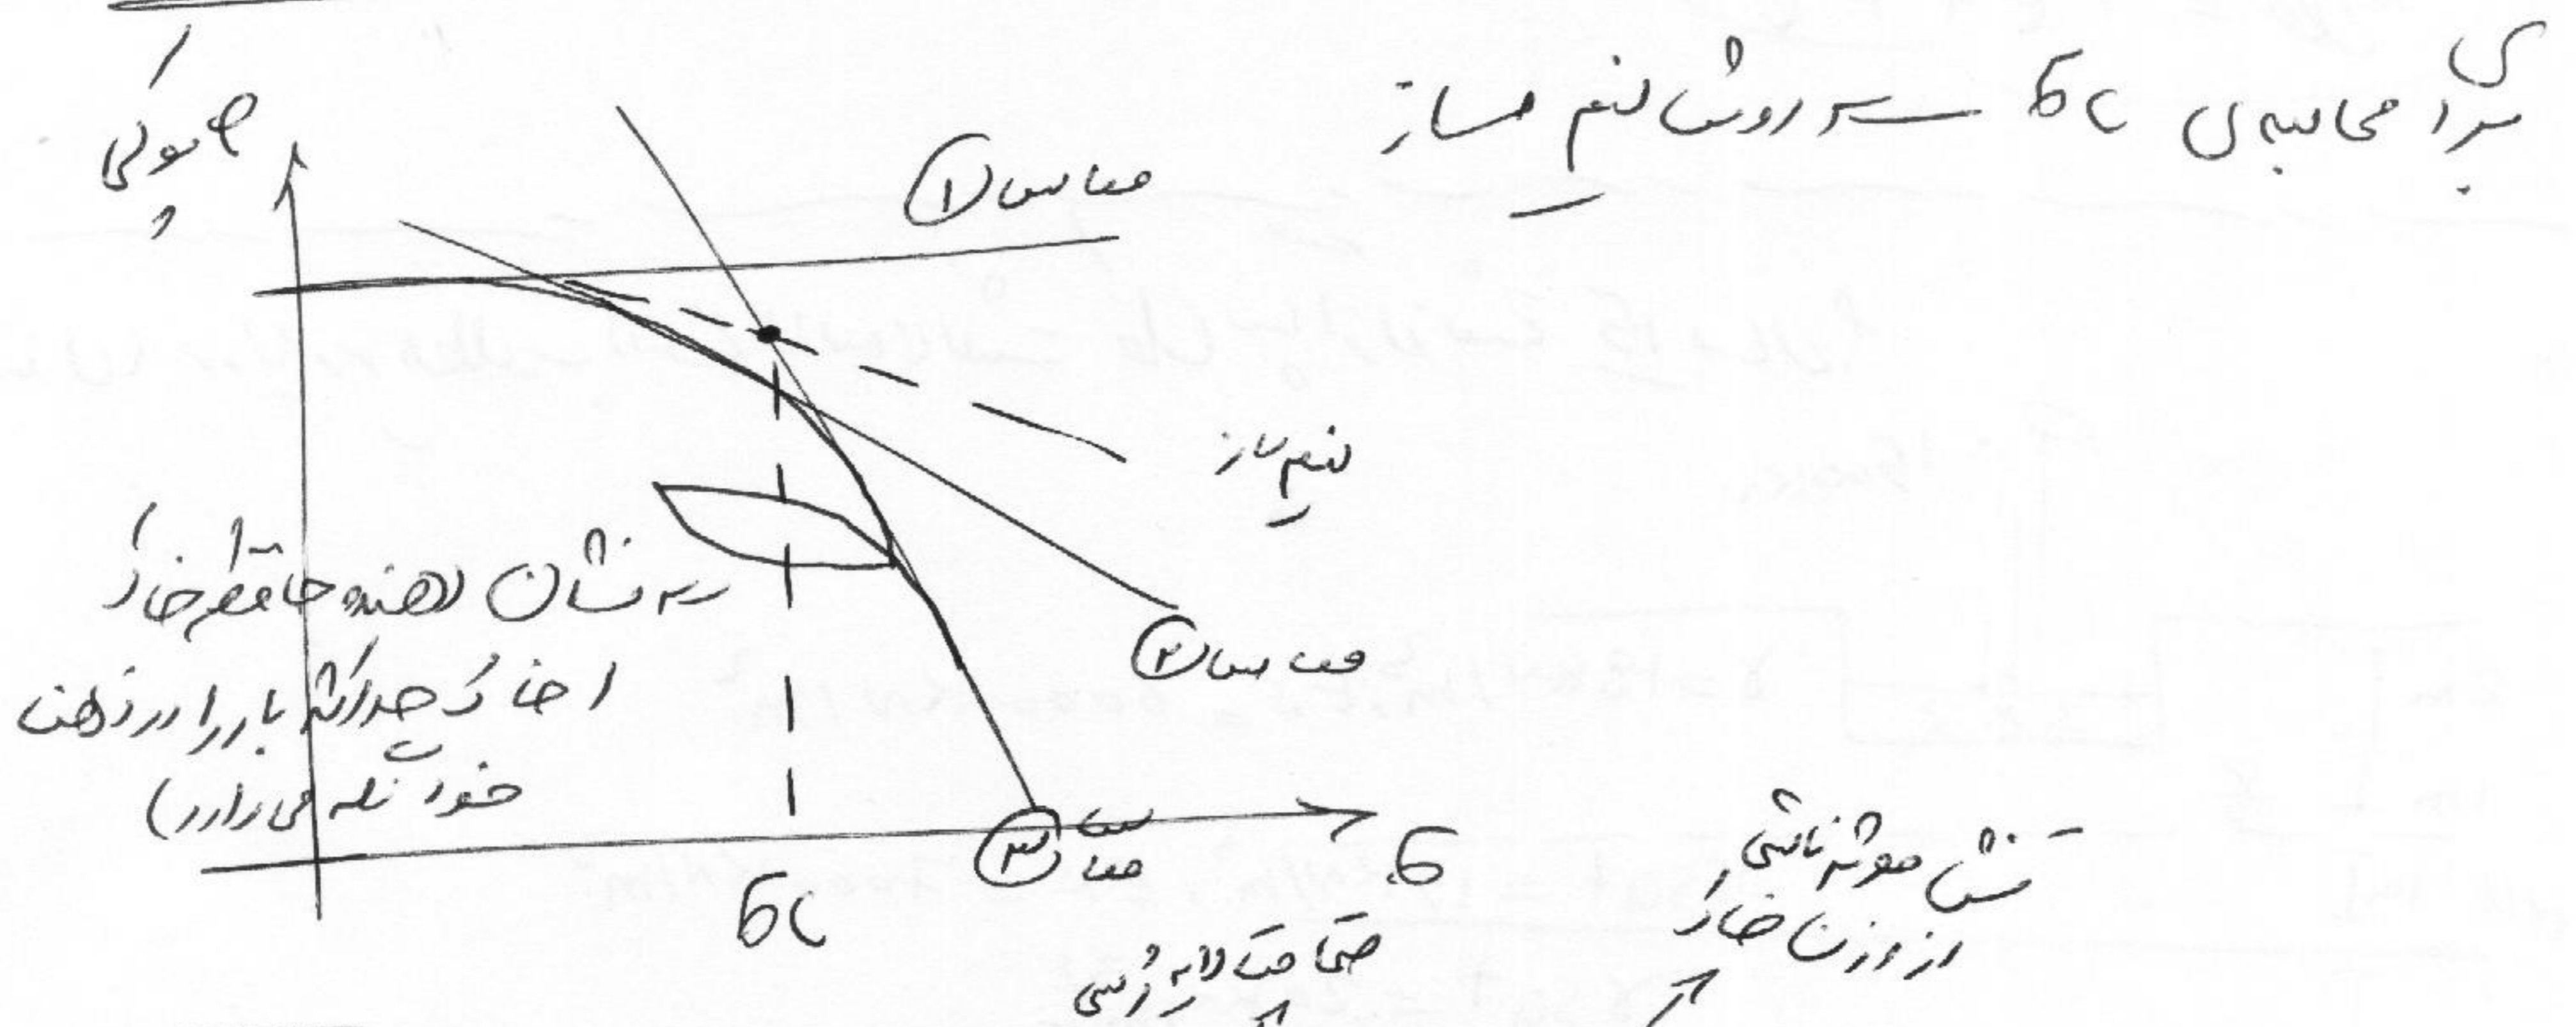 برای محاسبه‌ی σc ← روش نیم‌ساز
پوکی
e
مماس ①
نیم‌ساز
مماس ②
← نشان دهنده حافظه خاک
(خاک حداکثر بار را در ذهن
خود نگه می‌دارد)
مماس ③
σ
σc
تنش موثر ناشی
از وزن خاک
ضخامت لایه رسی